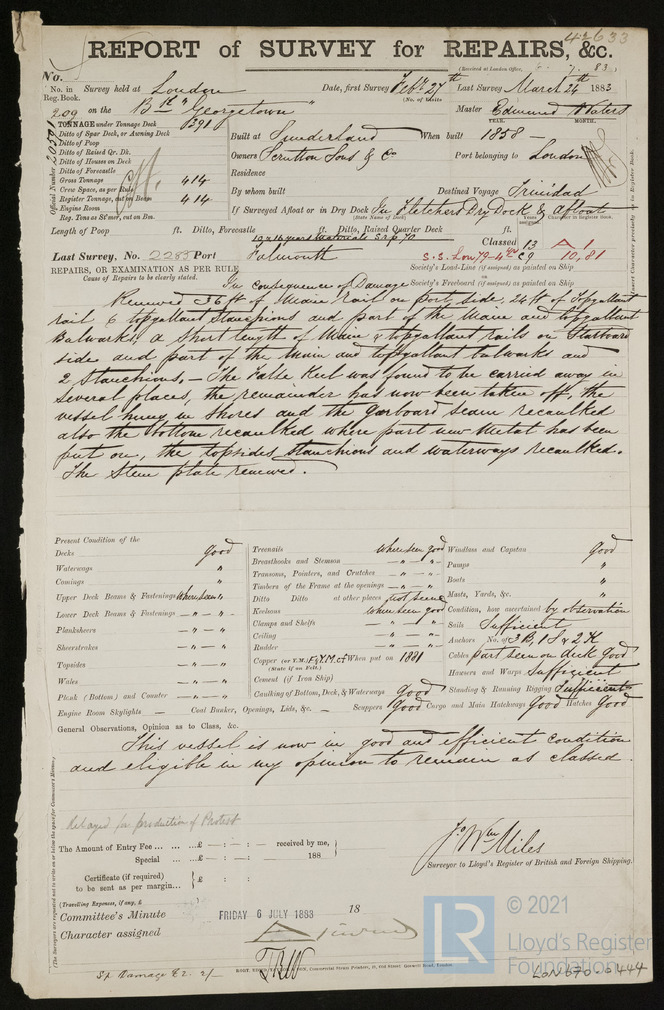 42633
REPORT of SURVEY for REPAIRS, &c.
(Received at London Office, 7. 83.
No.
No. in Reg. Book. Survey held at London Date, first Survey Feby 27th Last Survey March 24th 1883
(No. of Visits
209 on the Bk "Georgetown" Master Edmund Waters
TONNAGE under Tonnage Deck 391
YEAR. MONTH.
Ditto of Spar Deck, or Awning Deck Built at Sunderland When built 1858 –
Ditto of Poop
Ditto of Raised Qr. Dk. Owners Scrutton Sons & Co Port belonging to London
Ditto of Houses on Deck
Ditto of Forecastle Residence
Gross Tonnage 414
Crew Space, as per Rule By whom built Destined Voyage Trinidad
Register Tonnage, cut on Beam 414
Engine Room If Surveyed Afloat or in Dry Dock In Fletchers Dry Dock & Afloat
Reg. Tons as St'mer, cut on Bm. (State Name of Dock)
Official Number
Length of Poop ft. Ditto, Forecastle ft. Ditto, Raised Quarter Deck ft.
Years assigned. Character in Register Book.
Classed 13 A 1
Last Survey, No. 2285 Port Falmouth S.S. Lon 79-4yrs C 9 10,81
REPAIRS, OR EXAMINATION AS PER RULE Society's Load-Line (if assigned) as painted on Ship
Cause of Repairs to be clearly stated. In Consequence of Damage Society's Freeboard (if assigned) as painted on Ship
Renewed 36 ft of Main rail on port side, 24 ft of Topgallant
rail 6 topgallant Stanchions and part of the Main and topgallant
Bulwarks, a short length of Main & topgallant rails on Starboard
side and part of the Main and topgallant bulwarks and
2 Stanchions, – The False Keel was found to be carried away in
several places, the remainder has now been taken off, the
vessel hung in shores and the garboard seam recaulked
also the bottom recaulked where part new Metal has been
put on, the topsides stanchions and waterways recaulked.
The Stem plate renewed.
Present Condition of the
Decks good
Waterways "
Comings "
Upper Deck Beams & Fastenings where seen "
Lower Deck Beams & Fastenings – " –
Planksheers – " –
Sheerstrakes – " –
Topsides – " –
Wales – " –
Plank (Bottom) and Counter – " –
Engine Room Skylights – Coal Bunker, Openings, Lids, &c. –
Treenails where seen good
Breasthooks and Stemson – " –
Transoms, Pointers, and Crutches – " –
Timbers of the Frame at the openings – " –
Ditto Ditto at other places not seen
Keelsons where seen good
Clamps and Shelfs – " –
Ceiling – " –
Rudder – " –
Copper (or Y.M.) F & Y.M. of When put on 1881
(State if on Felt.)
Cement (if Iron Ship)
Caulking of Bottom, Deck, & Waterways good
Scuppers good Cargo and Main Hatchways Good Hatches Good
Windlass and Capstan good
Pumps "
Boats "
Masts, Yards, &c. "
Condition, how ascertained by observation
Sails Sufficient
Anchors No. of 3 B, 1 S & 2 K.
Cables part seen on deck Good
Hawsers and Warps Sufficient
Standing & Running Rigging Sufficient
General Observations, Opinion as to Class, &c.
This vessel is now in good and efficient condition
and eligible in my opinion to remain as classed.
Delayed for production of Protest
The Amount of Entry Fee ... £ : : received by me,
Special ... £ : : 188
Certificate (if required) to be sent as per margin... £ :
(Travelling Expenses, if any, £
Jo Wm Miles
Surveyor to Lloyd's Register of British and Foreign Shipping.
Committee's Minute FRIDAY 6 JULY 1883 18
Character assigned
Sp Damage £2. 2/-
LR © 2021
Lloyd's Register
Foundation
LON670-0444